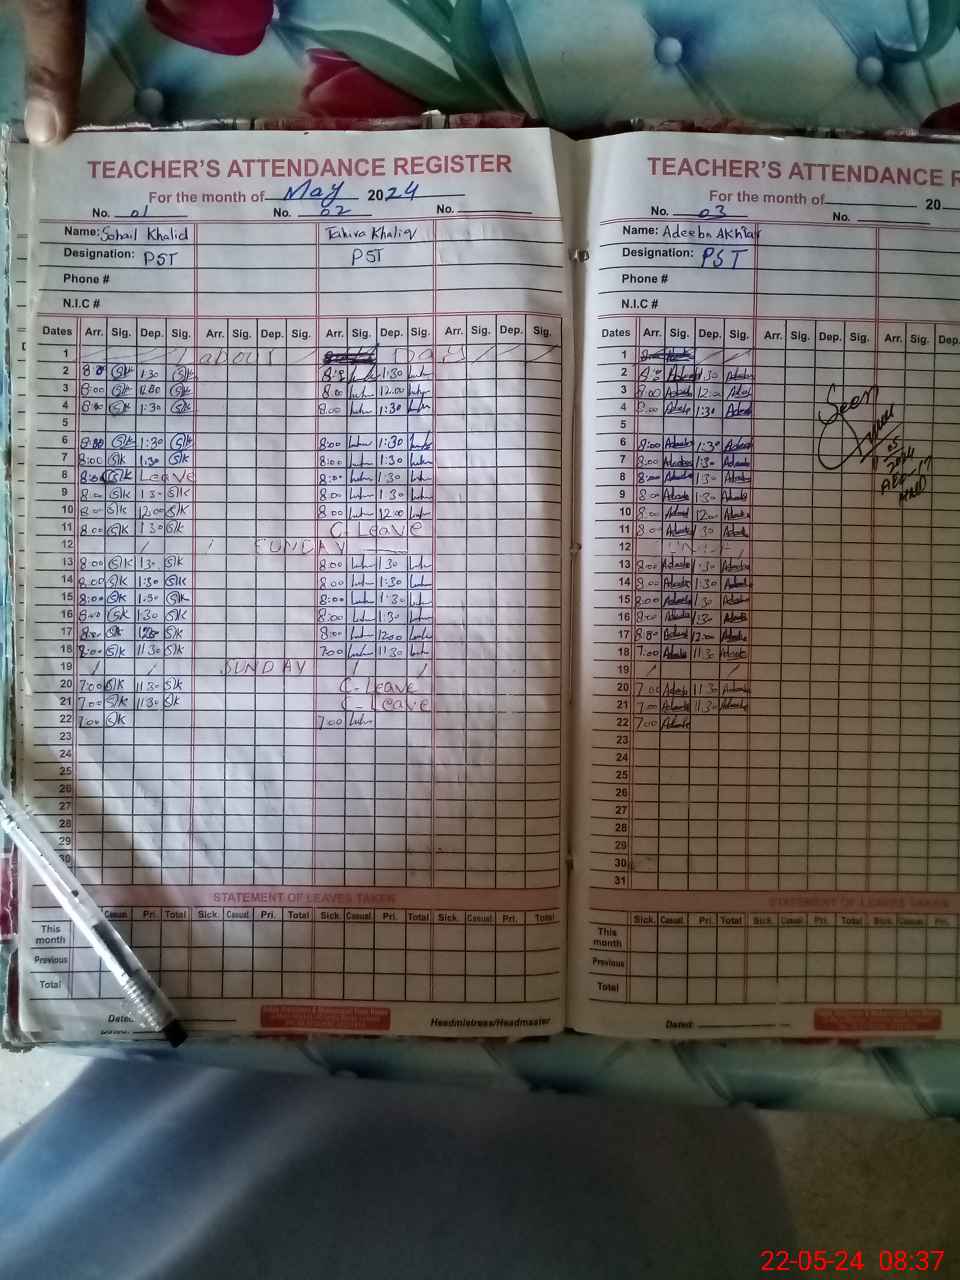 TEACHER'S ATTENDANCE REGISTER
For the month of May 2024
No. 01 No. 02 No.
Name: Sohail Khalid Tahira Khaliq
Designation: PST PST
Phone #
N.I.C #
Dates Arr. Sig. Dep. Sig. Arr. Sig. Dep. Sig. Arr. Sig. Dep. Sig. Arr. Sig. Dep. Sig.
1 Labour Day
2 8:00 SK 1:30 SK 1:30
3 8:00 SK 12:00 SK 8:00 12:00
4 8:00 SK 1:30 SK 8:00 1:30
5
6 8:00 SK 1:30 SK 8:00 1:30
7 8:00 SK 1:30 SK 8:00 1:30
8 8:00 SK Leave 8:00 1:30
9 8:00 SK 1:30 SK 8:00 1:30
10 8:00 SK 12:00 SK 8:00 12:00
11 8:00 SK 1:30 SK C. Leave
12 SUNDAY
13 8:00 SK 1:30 SK 8:00 1:30
14 8:00 SK 1:30 SK 8:00 1:30
15 8:00 SK 1:30 SK 8:00 1:30
16 8:00 SK 1:30 SK 8:00 1:30
17 8:00 SK 12:00 SK 8:00 12:00
18 SK 11:30 SK 7:00 11:30
19 SUNDAY
20 7:00 SK 11:30 SK C. Leave
21 7:00 SK 11:30 SK C. Leave
22 7:00 SK 7:00
23
24
25
26
27
28
29
30
STATEMENT OF LEAVES TAKEN
Casual Pri. Total Sick. Casual Pri. Total Sick. Casual Pri. Total Sick. Casual Pri. Total
This month
Previous
Total
Dated:
Headmistress/Headmaster
TEACHER'S ATTENDANCE R
For the month of 20
No. 03 No.
Name: Adeeba Akhtar
Designation: PST
Phone #
N.I.C #
Dates Arr. Sig. Dep. Sig. Arr. Sig. Dep. Sig. Arr. Sig.
1
2 Adeeba 1:30 Adeeba
3 8:00 Adeeba 12:00 Adeeba
4 8:00 Adeeba 1:30 Adeeba
5
6 8:00 Adeeba 1:30 Adeeba
7 8:00 Adeeba 1:30 Adeeba
8 8:00 Adeeba 1:30 Adeeba
9 8:00 Adeeba 1:30 Adeeba
10 8:00 Adeeba 12:00 Adeeba
11 8:00 Adeeba 1:30 Adeeba
12
13 8:00 Adeeba 1:30 Adeeba
14 8:00 Adeeba 1:30 Adeeba
15 8:00 Adeeba 1:30 Adeeba
16 8:00 Adeeba 1:30 Adeeba
17 8:00 Adeeba 12:00 Adeeba
18 7:00 Adeeba 11:30 Adeeba
19
20 7:00 Adeeba 11:30 Adeeba
21 7:00 Adeeba 11:30 Adeeba
22 7:00 Adeeba
23
24
25
26
27
28
29
30
31
Seen
STATEMENT OF LEAVES TAKEN
Sick. Casual Pri. Total Sick. Casual Pri. Total Sick. Casual Pri.
This month
Previous
Total
Dated:
22-05-24 08:37